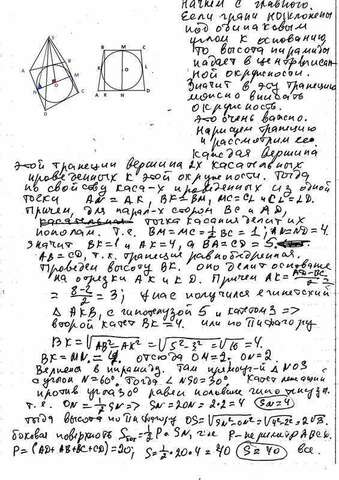 Начнем с главного.
Если грани наклонены
под одинаковым
углом к основанию,
то высота пирамиды
падает в центр вписан-
ной окружности.
Значит в эту трапецию
можно вписать
окружность.
это очень важно.
Нарисуем трапецию
и рассмотрим ее.
каждая вершина
этой трапеции вершина 2х касательных
проведенных к этой окружности. Тогда
по свойству каса-х проведенных из одной
точки AN = AK, BK = BM, MC = CL и CL = LD.
Причем, для парал-х сторон BC и AD,
точка касания делит их
пополам. т.е. BM = MC = ½ BC = 1; AN = ND = 4.
Значит BK = 1 и AK = 4, а BA = CD = 5.
AB = CD, т.к. трапеция равнобедренная.
Проведем высоту BK. оно делит основание
на отрезки AK и KD. Причем AK = (AD-BC)/2 =
= (8-2)/2 = 3; у нас получился египетский
Δ AKB, с гипотенузой 5 и катетом 3 =>
второй катет BK = 4. или по Пифагору
BK = √AB²-AK² = √5²-3² = √16 = 4.
BK = MN = 4. отсюда OM = 2. ON = 2.
Вернемся в пирамиду. Там прямоуг-й Δ NOS
с углом N = 60°. Тогда ∠NSO = 30° катет лежащий
против угла 30° равен половине гипотенузы.
т.е. ON = ½ SN => SN = 2ON = 2·2 = 4 SN = 4
тогда высота по Пифагору OS = √SN²-ON² = √4²-2² = 2√3.
боковая поверхность Sбок = ½ P·SN, где P - периметр ABCD.
P = (AD + AB + BC + CD) = 20; S = ½·20·4 = 40 S = 40 все.